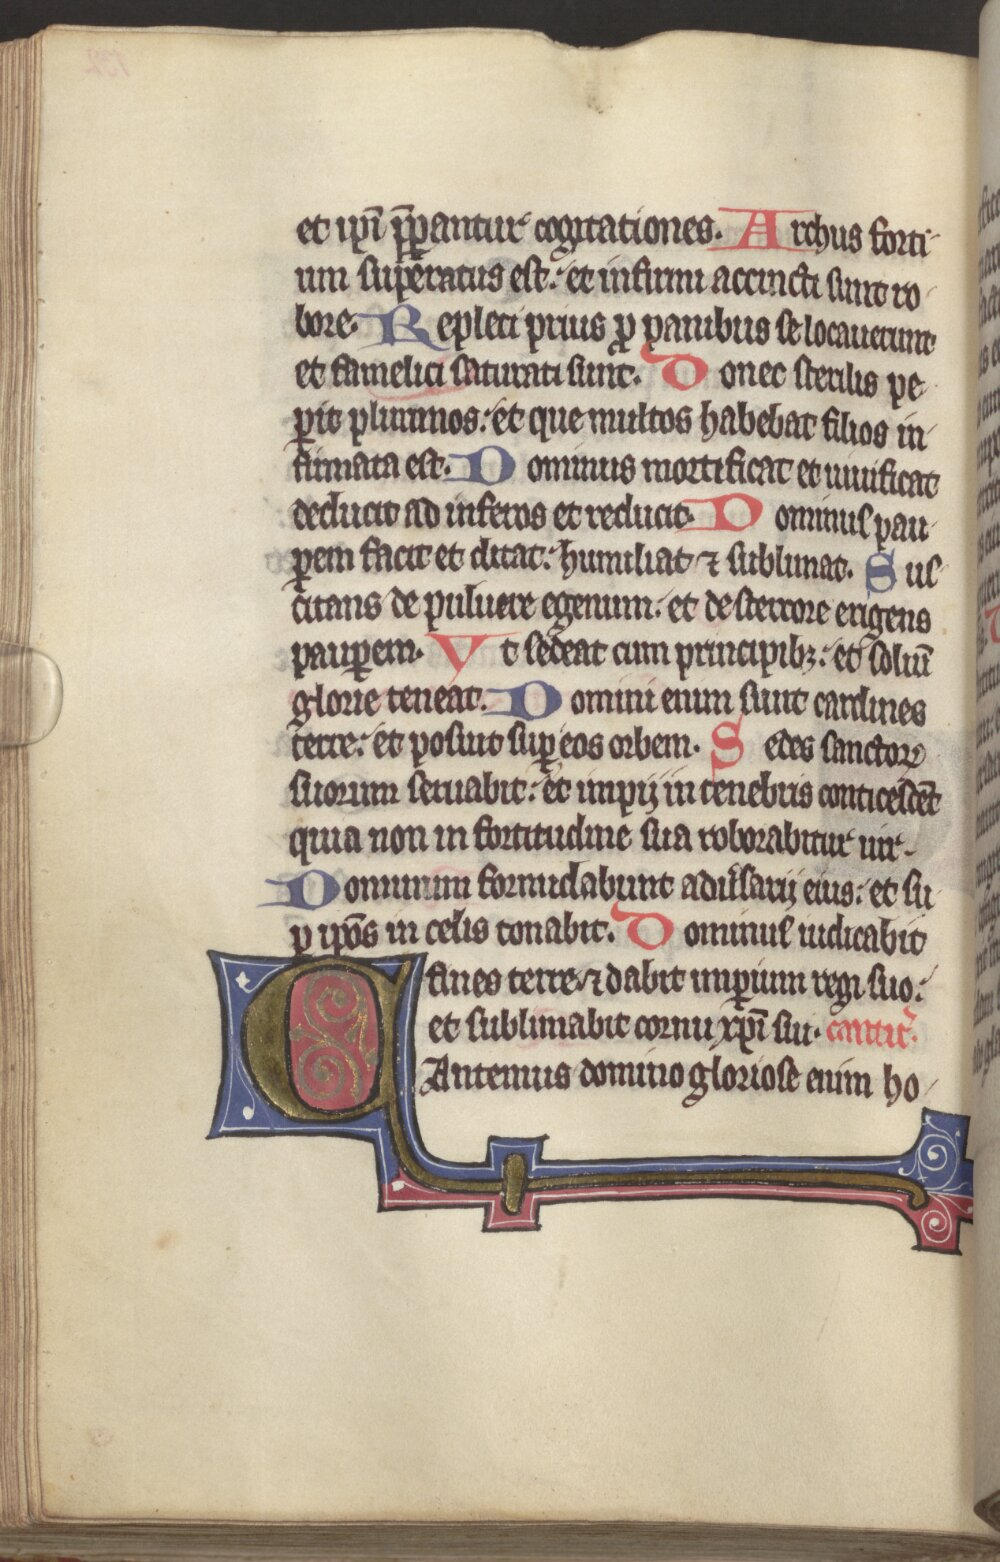 et ip̄i p̄pantur cogitationes. Archus forti
um superatus est: et infirmi accincti sunt ro
bore. Repleti prius ꝓ panibus se locauerunt
et famelici saturati sunt. Donec sterilis pe
ꝑit plurimos: et que multos habebat filios in
firmata est. Dominus mortificat et uiuificat
deducit ad inferos et reducit. Dominus pau
ꝑem facit et ditat: humiliat ⁊ sublimat. Sus
citans de puluere egenum: et de stercore erigens
pauꝑem. Vt sedeat cum principibꝫ: et soliū
glorie teneat. Domini enim sunt cardines
terre: et posuit suꝑ eos orbem. Sedes sanctoꝝ
suorum seruabit: et impij in tenebris conticescēt
quia non in fortitudine sua roborabitur uir.
Dominum formidabunt adũsarij eius: et su
ꝑ ip̄os in celis tonabit. Dominus iudicabit
fines terre, ⁊ dabit imꝑium regi suo:
et sublimabit cornu xp̄i sui. cantic̃.
Cantemus domino gloriose enim ho